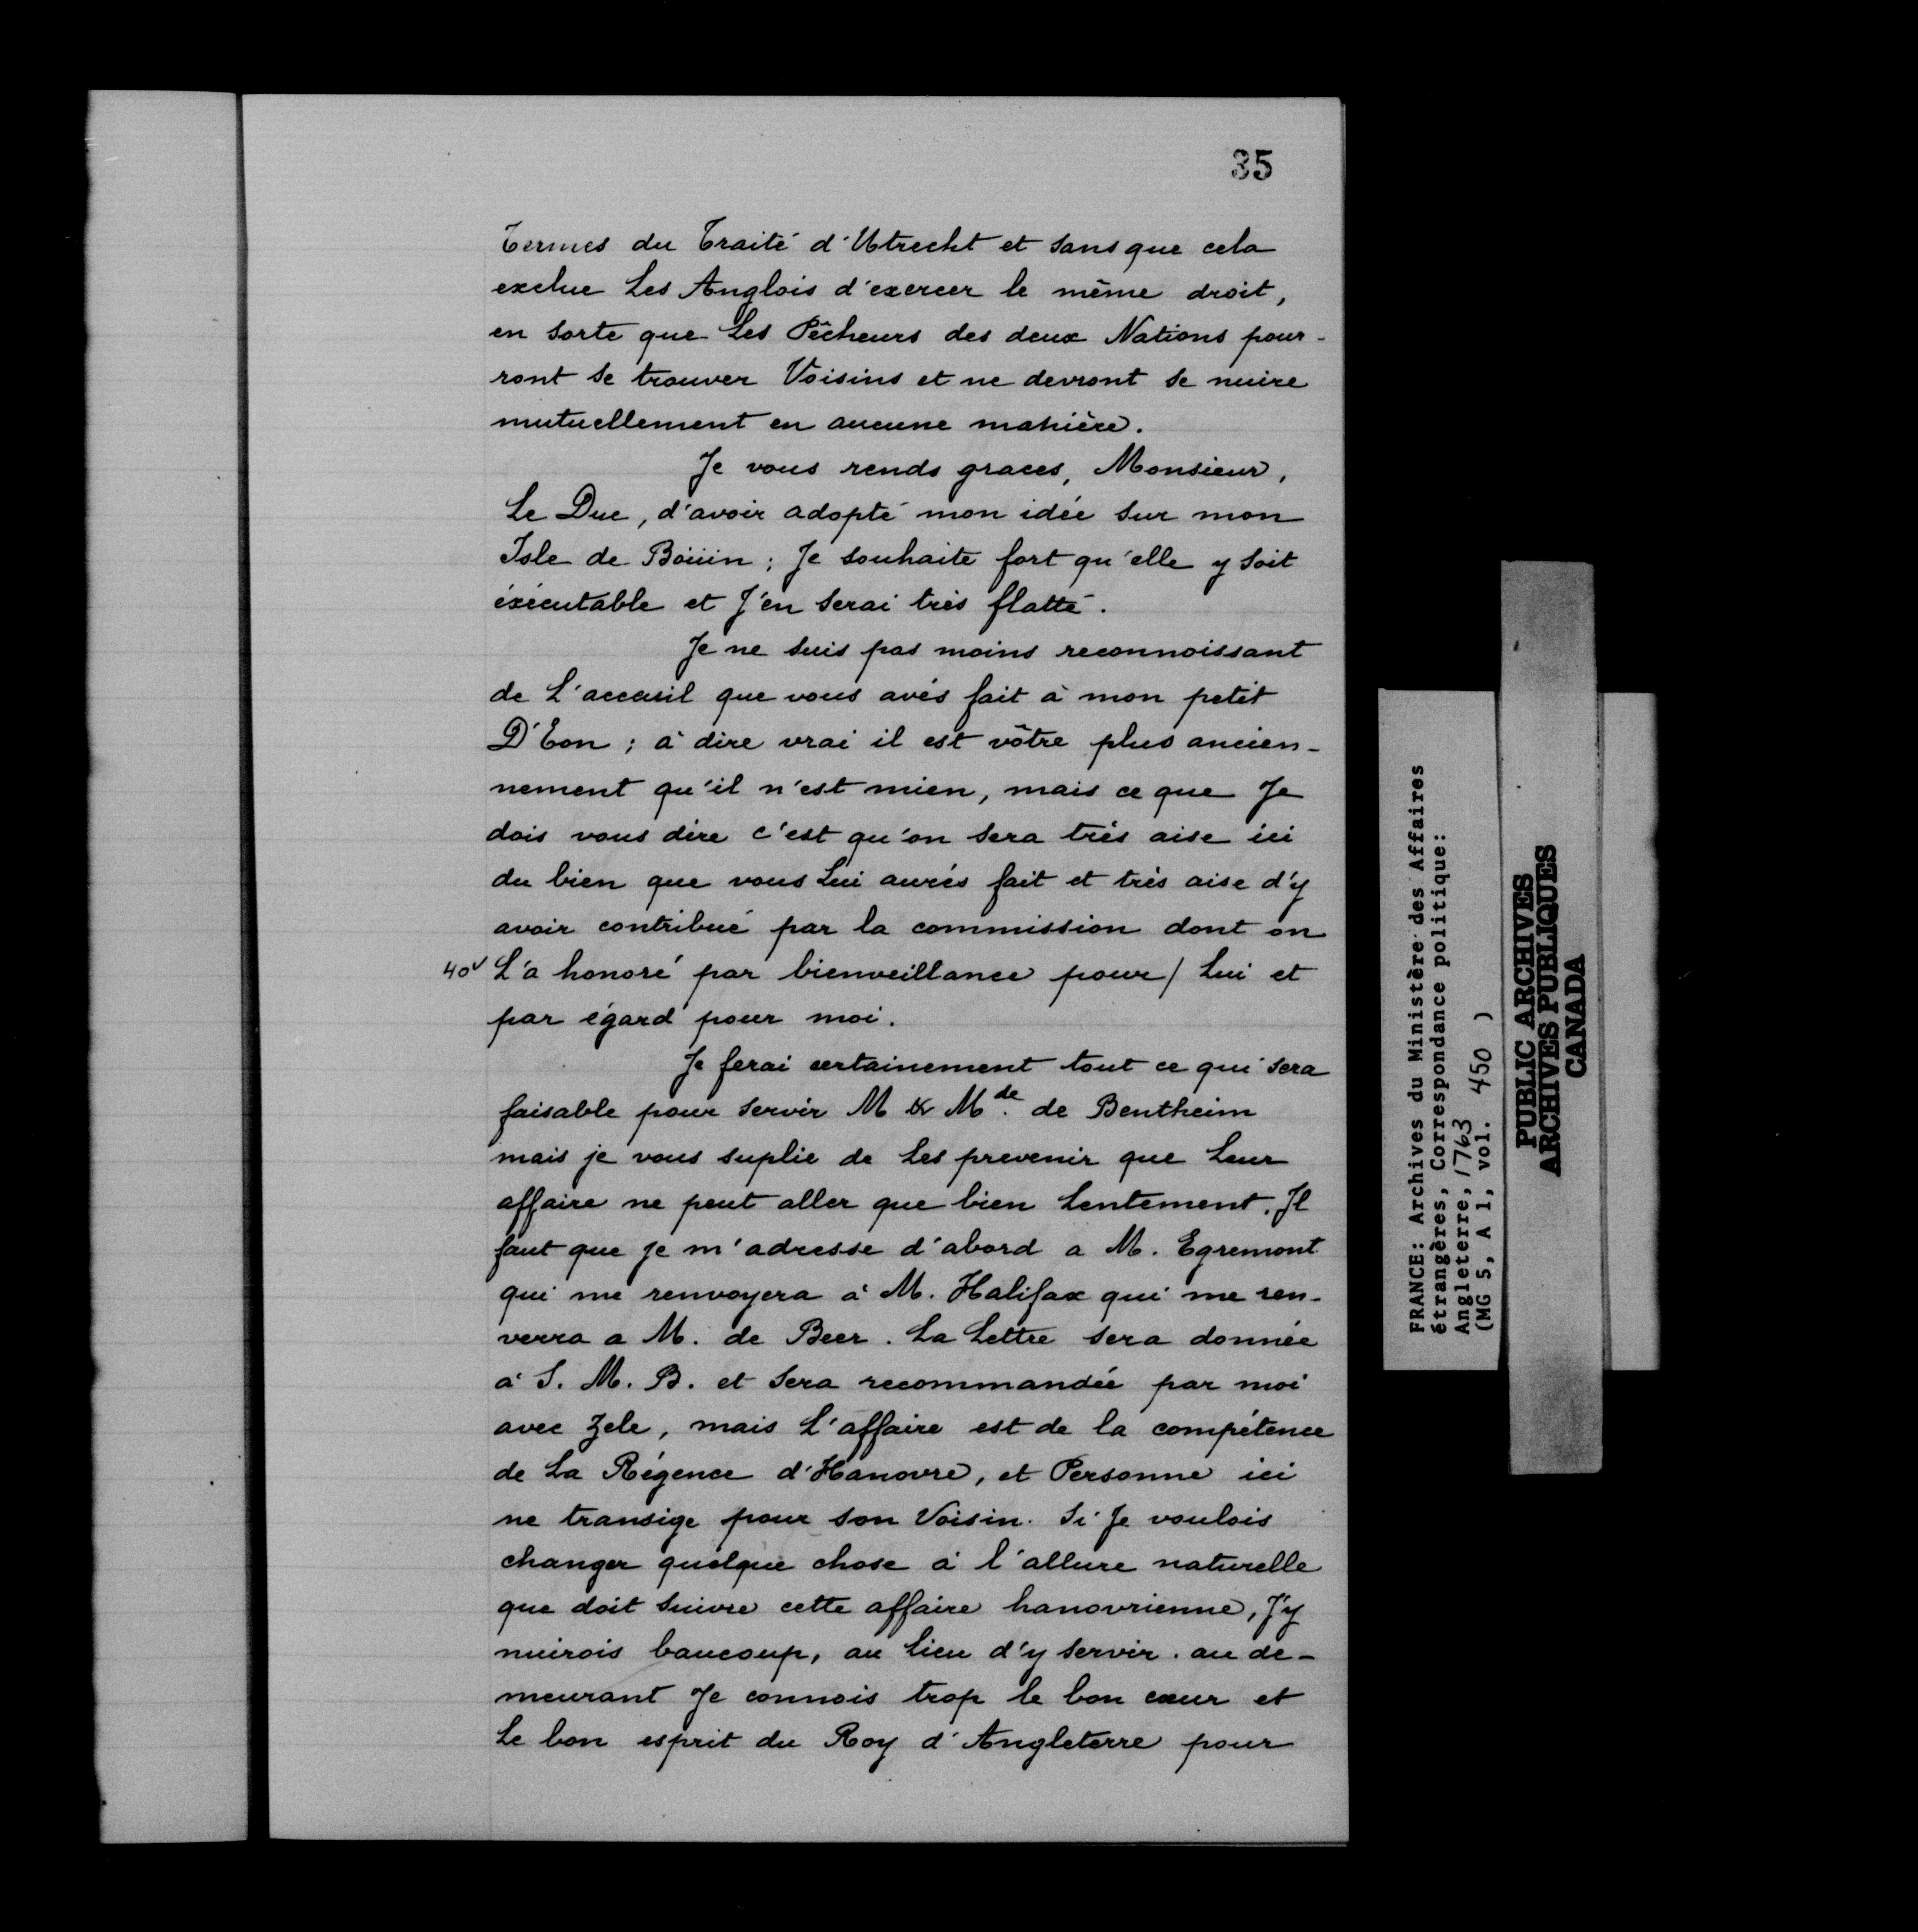 35
Termes du Traité d'Utrecht et sans que cela
exclue Les Anglois d'exercer le même droit,
en sorte que Les Pêcheurs des deux Nations pour-
ront se trouver Voisins et ne devront se nuire
mutuellement en aucune manière.
Je vous rends graces, Monsieur,
Le Duc, d'avoir adopté mon idée sur mon
Isle de Boüin ; Je souhaite fort qu'elle y soit
éxécutable et J'en serai très flatté.
Je ne suis pas moins reconnoissant
de L'accueil que vous avés fait à mon petit
D'Eon ; à dire vrai il est vôtre plus ancien-
nement qu'il n'est mien, mais ce que Je
dois vous dire c'est qu'on sera très aise ici
du bien que vous Lui aurés fait et très aise d'y
avoir contribué par la commission dont on
40v L'a honoré par bienveillance pour / Lui et
par égard pour moi.
Je ferai certainement tout ce qui sera
faisable pour servir M & Mde. de Bentheim
mais je vous suplie de Les prevenir que Leur
affaire ne peut aller que bien Lentement. Il
faut que je m'adresse d'abord a M. Egremont
qui me renvoyera à M. Halifax qui me ren-
verra a M. de Beer. La Lettre sera donnée
à S. M. B. et sera recommandée par moi
avec zele, mais L'affaire est de la compétence
de La Régence d'Hanovre, et Personne ici
ne transige pour son Voisin. Si Je voulois
changer quelque chose à l'allure naturelle
que doit suivre cette affaire hanovrienne, J'y
nuirois baucoup, au Lieu d'y servir. au de-
meurant Je connois trop le bon cœur et
Le bon esprit du Roy d'Angleterre pour
FRANCE: Archives du Ministère des Affaires
étrangères, Correspondance politique:
Angleterre, 1763
(MG 5, A 1, vol. 450 )
PUBLIC ARCHIVES
ARCHIVES PUBLIQUES
CANADA